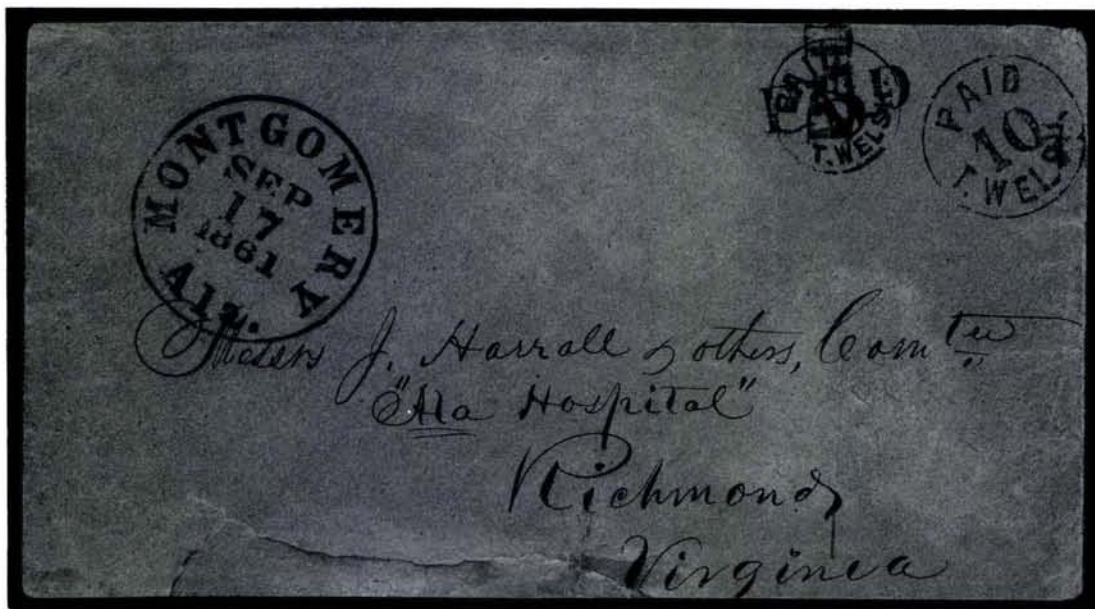 MONTGOMERY
Ala.
SEP
17
1861
PAID
T. WELSH
PAID
10
T. WELSH
Messrs J. Harrall & others, Comtee
"Ala Hospital"
Richmond,
Virginia